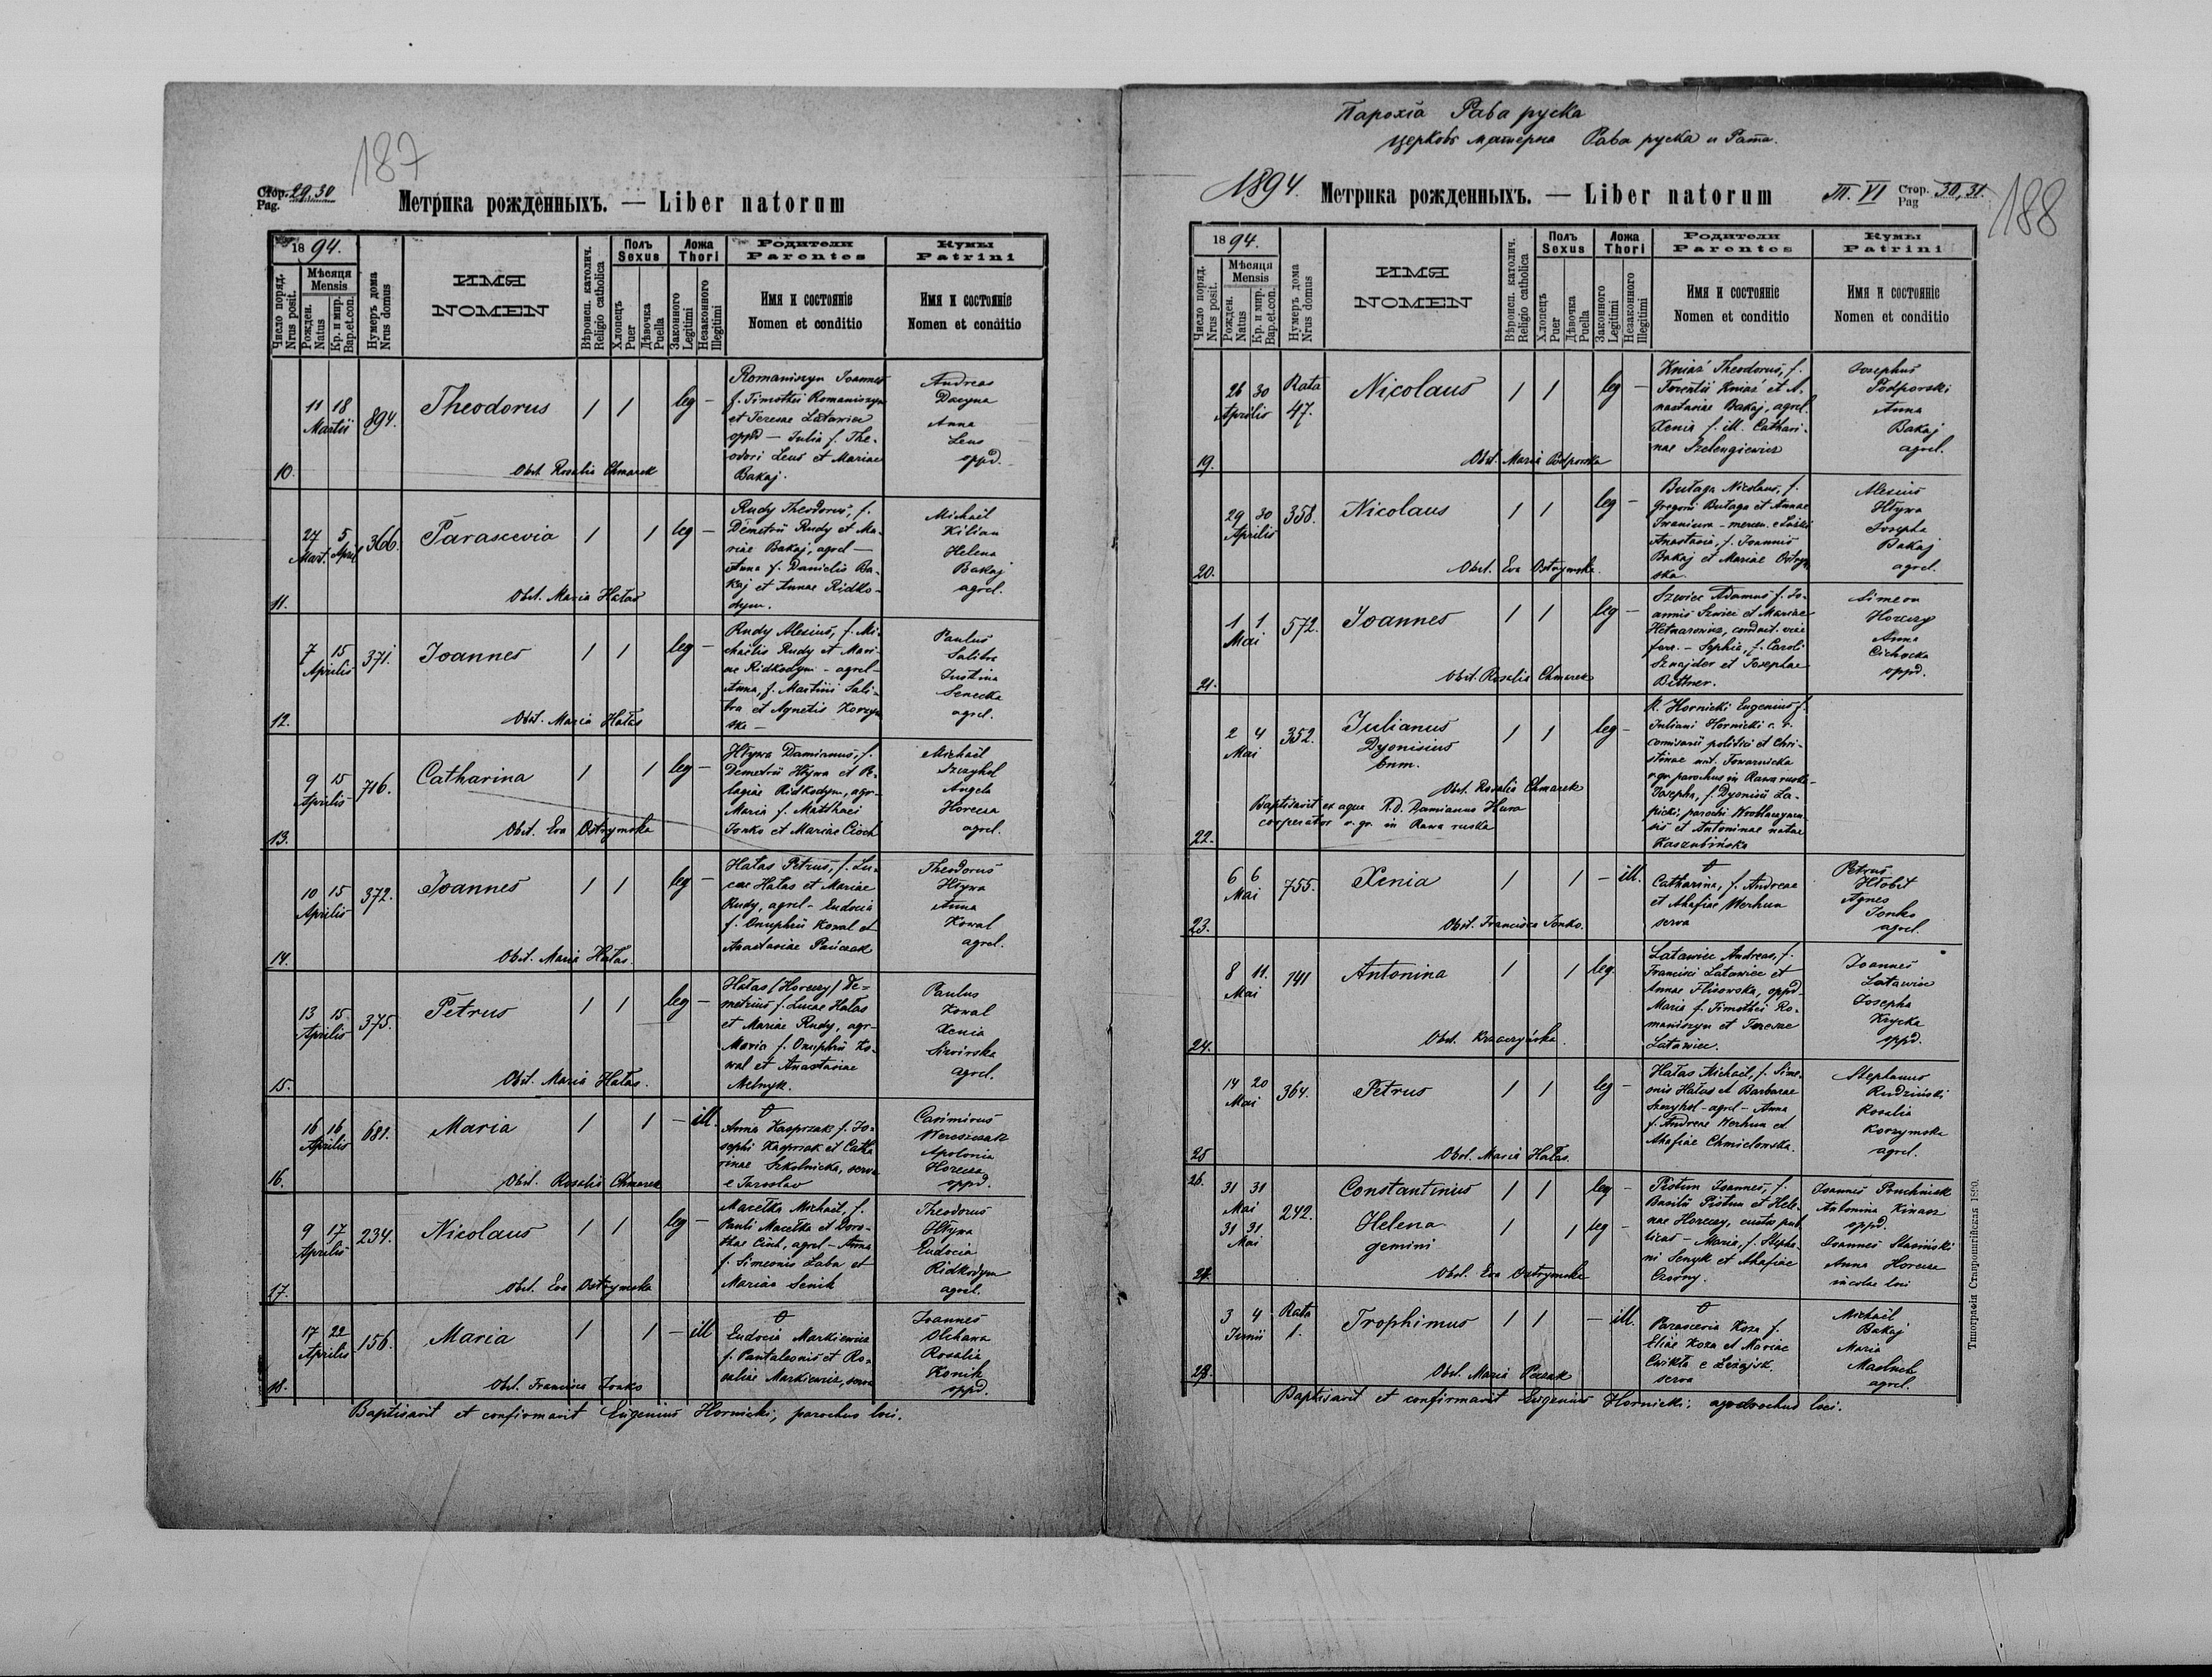 187
Стор. 29, 30
Pag.
Метрика рожденныхъ. — Liber natorum
18 94.
Число поряд.
Nrus posit.
Мѣсяця
Mensis
Рожден.
Natus
Кр. и мир.
Bap.et.con.
Нумеръ дома
Nrus domus
ИМЯ
NOMEN
Вѣроисп. католич.
Religio catholica
Полъ
Sexus
Хлопецъ
Puer
Дѣвочка
Puella
Ложа
Thori
Законного
Legitimi
Незаконного
Illegitimi
Родители
Parentes
Имя и состояніе
Nomen et conditio
Кумы
Patrini
Имя и состояніе
Nomen et conditio
10.
11 18
Martii
894.
Theodorus
1 1 leg —
Obst. Rosalia Chmarek
Romaniszyn Joannes
f. Timothei Romaniszyn
et Teresae Latawiec
oppid — Julia f. The-
odori Leus et Mariae
Bakaj.
Andreas
Anna
Leus
oppd.
11.
27 5
Mart. April
366.
Parascevia
1 1 leg —
Obst. Maria Hałas
Rudy Theodorus, f.
Demetrii Rudy et Ma-
riae Bakaj, agrcl —
Anna f. Danielis Ba-
kaj et Annae Ridko-
dym.
Michaël
Kilian
Helena
Bakaj
agrcl.
12.
7 15
Aprilis
371.
Joannes
1 1 leg —
Obst. Maria Hałas
Rudy Alexius, f. Mi-
chaëlis Rudy et Mari-
ae Ridkodym — agrcl —
Anna, f. Martini Sali-
bra et Agnetis Korzym
ska —
Paulus
Salibra
Justina
Senecka
agrcl.
13.
9 15
Aprilis
716.
Catharina
1 1 leg —
Obst. Eva Ostrymska
Hływa Damianus, f.
Demetrii Hływa et Pe-
lagiae Ridkodym, agr-
Maria f. Matthaei
Jonko et Mariae Cioch
Michaël
Szczyhol
Angela
Horecza
agrcl.
14.
10 15
Aprilis
372.
Joannes
1 1 leg —
Obst. Maria Hałas.
Hałas Petrus, f. Lu-
cae Hałas et Mariae
Rudy, agrcl — Eudocia
f. Onuphrii Kowal et
Anastasiae Pańczak
Theodorus
Hływa
Anna
Kowal
agrcl.
15.
13 15
Aprilis
375.
Petrus
1 1 leg —
Obst. Maria Hałas.
Hałas (Horeczy) De=
metrius f. Lucae Hałas
et Mariae Rudy, agr-
Maria f. Onuphrii Ko-
wal et Anastasiae
Melnyk.
Paulus
Kowal
Xenia
agrcl.
16.
16 16
Aprilis
681.
Maria
1 1 — ill.
Obst. Rosalia Chmarek
Anna Kasprzak f. Jo-
sephi Kasprzak et Catha
rinae Szkolnicka, serva
e Jaroslav
Casimirus
Wereszczak
Apolonia
Horecza
oppd.
17.
9 17
Aprilis
234.
Nicolaus
1 1 leg —
Obst. Eva Ostrymska
Macełka Michaël, f.
Pauli Macełka et Doro-
theae Cioch, agrcl — Anna
f. Simeonis Laba et
Mariae Senik
Theodorus
Hływa
Eudocia
Ridkodym
agrcl.
18.
17 22
Aprilis
156.
Maria
1 1 — ill
Obst. Francisca Jonko
Eudocia Markiewicz
f. Pantaleonis et Ro-
saliae Markiewicz, serva
Joannes
Olchawa
Rosalia
Konik
oppd.
Baptisavit et confirmavit Eugenius Hornicki, parochus loci.
Парохія Рава руска
церковь матерна Рава руска и Рата.
188
1894. Метрика рожденныхъ. — Liber natorum
Т. VI Стор. 30, 31.
Pag
18 94.
Число поряд.
Nrus posit.
Мѣсяця
Mensis
Рожден.
Natus
Кр. и мир.
Bap.et.con.
Нумеръ дома
Nrus domus
ИМЯ
NOMEN
Вѣроисп. католич.
Religio catholica
Полъ
Sexus
Хлопецъ
Puer
Дѣвочка
Puella
Ложа
Thori
Законного
Legitimi
Незаконного
Illegitimi
Родители
Parentes
Имя и состояніе
Nomen et conditio
Кумы
Patrini
Имя и состояніе
Nomen et conditio
19.
26 30
Aprilis
Rata
47.
Nicolaus
1 1 leg —
Obst. Maria Podporska
Kniaź Theodorus, f.
Terentii Kniaź et A-
nastasiae Bakaj, agrcl.
Xenia f. ill. Cathari-
nae Szelengiewicz
Josephus
Podporski
Anna
Bakaj
agrcl.
20.
29 30
Aprilis
358.
Nicolaus
1 1 leg —
Obst. Eva Ostrymska.
Bułaga Nicolaus, f.
Gregorii Bułaga et Annae
Iwaniura — mercen.
Anastasia, f. Joannis
Bakaj et Mariae Ostrym
ska.
Alexius
Hływa
Josepha
Bakaj
agrcl.
21.
1 1
Mai
572.
Joannes
1 1 leg —
Obst. Rosalia Chmarek
Szwiec Adamus f. Jo-
annis Szwiec et Mariae
Hetnarowicz, conduct. viae
ferr. — Sophia, f. Caroli
Sznajder et Josephae
Bittner.
Simeon
Horeczy
Anna
Cichocka
oppd.
22.
2 4
Mai
352.
Julianus
Dyonisius
bnm.
1 1 leg —
Obst. Rosalia Chmarek
Baptisavit ex aqua R.D. Damianus Hura
cooperator r. gr. in Rawa ruska
R. Hornicki Eugenius f.
Juliani Hornicki c. r.
comisarii politici et Chri-
stinae nat. Towarnicka
r. gr. parochus in Rawa ruska —
Josepha, f. Dyonisii Ła-
picki, parochi
et Antoninae natae
Kaszubińska
23.
6 6
Mai
755.
Xenia
1 1 — ill.
Obst. Francisca Jonko.
Catharina, f. Andreae
et Ahafiae Werhun
serva
Petrus
Hłobit
Agnes
Jonko
agrcl.
24.
8 11.
Mai
141
Antonina
1 1 leg.
Obst. Krzaczyńska.
Latawiec Andreas, f.
Francisci Latawiec et
Annae Flisowska, oppd —
Maria f. Timothei Ro-
maniszyn et Teresae
Latawiec.
Joannes
Latawiec
Josepha
Krycka
oppd.
25
14 20
Mai
364.
Petrus
1 1 leg —
Obst. Maria Hałas.
Hałas Michaël, f. Sime-
onis Hałas et Barbarae
Szczyhol — agrcl — Anna
f. Andreae Werhun et
Ahafiae Chmielowska.
Stephanus
Rudziński
Rosalia
Korzymska
agrcl.
26.
31 31
Mai
31 31
Mai
242.
Constantinus
1 1 leg —
Helena
1 1 leg —
gemini
27.
Obst. Eva Ostrymska
Pistun Joannes, f.
Basilii Pistun et Hele-
nae Horeczy, custos pub
licus — Maria, f. Stepha-
ni Senyk et Ahafiae
Czorny.
Joannes
Antonina
oppd.
Joannes Stasiński
Anna Horecza
incolae loci
28.
3 4
Junii
Rata
1.
Trophimus
1 1 — ill.
Obst. Maria Peczak
Parascevia Koza f.
Eliae Koza et Mariae
Cwikła e Leżajsk.
serva
Michaël
Bakaj
Maria
agrcl.
Baptisavit et confirmavit Eugenius Hornicki, loci.
Типографія Ставропигійская 1890.